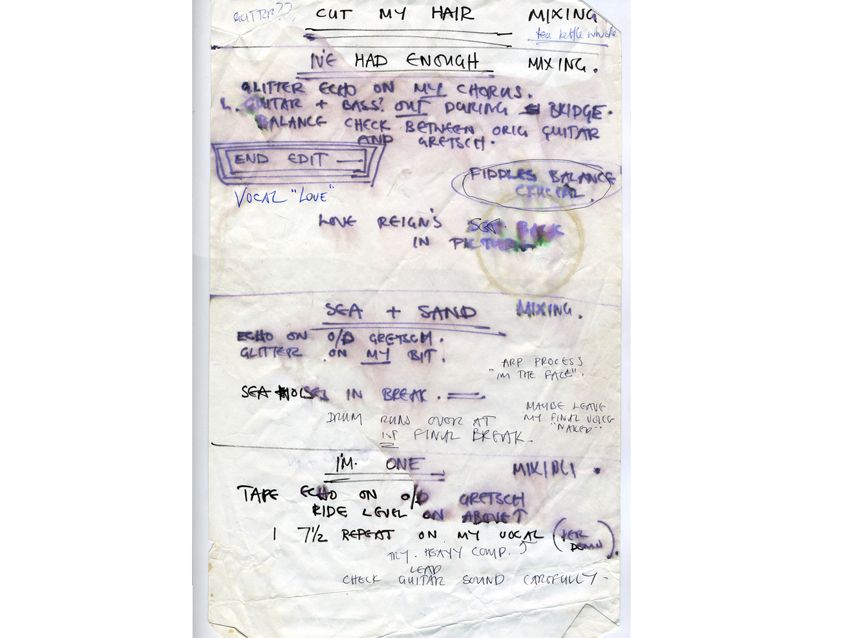 GUITAR??
CUT MY HAIR MIXING
tea kettle whistle
I'VE HAD ENOUGH MIXING.
GLITTER ECHO ON MY CHORUS.
GUITAR + BASS? OUT DURING BRIDGE.
BALANCE CHECK BETWEEN ORIG GUITAR
AND GRETSCH.
END EDIT
FIDDLES BALANCE
CRUCIAL.
VOCAL "LOVE"
LOVE REIGN'S SEA BACK
IN PICTURE
SEA + SAND MIXING.
ECHO ON O/D GRETSCH.
GLITTER ON MY BIT.
ARP PROCESS
"IM THE FACE".
SEA NOISES IN BREAK.
MAYBE LEAVE
MY FINAL VOICE
"NAKED"
DRUM RUNS OVER AT
1ST FINAL BREAK.
I'M ONE MIXING.
TAPE ECHO ON O/D GRETSCH
RIDE LEVEL ON ABOVE↑
1 7½ REPEAT ON MY VOCAL
TRY. HEAVY COMP. ↑
LEAD
CHECK GUITAR SOUND CAREFULLY-